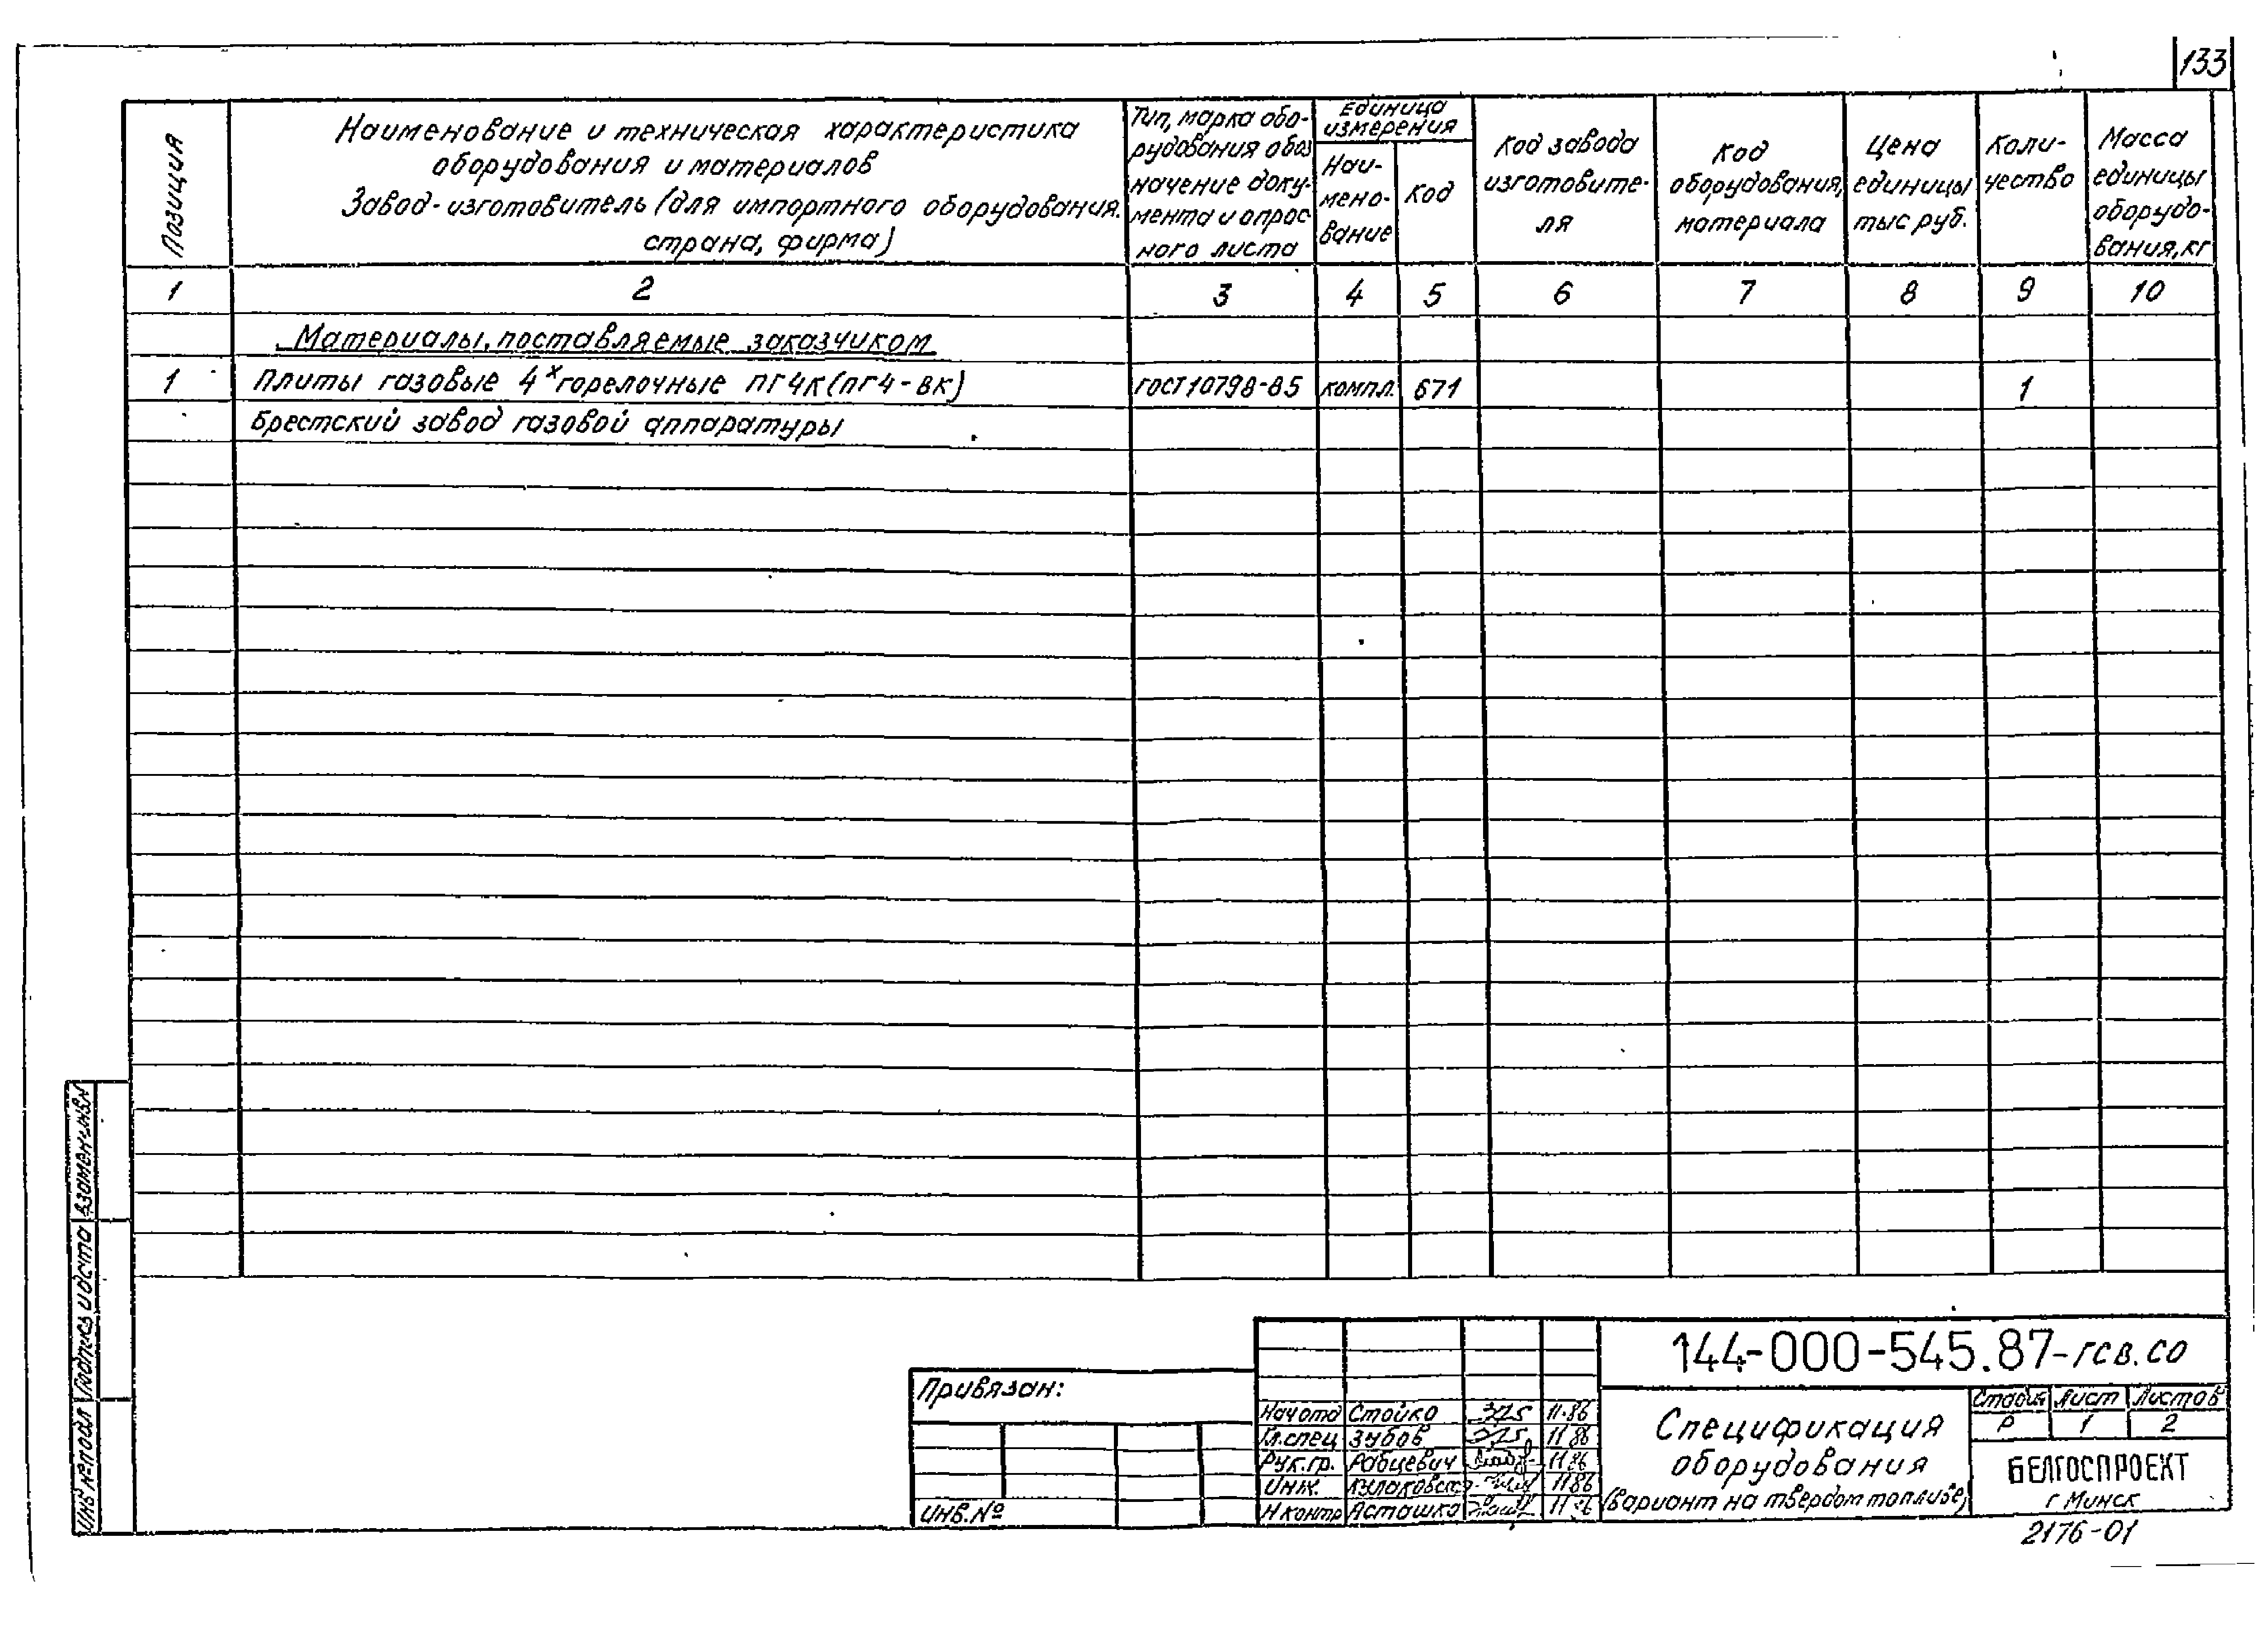 133
Позиция
Наименование и техническая характеристика
оборудования и материалов
Завод-изготовитель (для импортного оборудования.
страна, фирма)
Тип, марка обо-
рудования обоз
начение доку-
мента и опрос
ного листа
Единица
измерения
Наи-
мено-
вание
Код
Код завода
изготовите-
ля
Код
оборудования,
материала
Цена
единицы
тыс руб.
Коли-
чество
Масса
единицы
оборудо-
вания, кг
1 2 3 4 5 6 7 8 9 10
Материалы, поставляемые заказчиком
1 Плиты газовые 4х горелочные ПГ4К (ПГ4-ВК) ГОСТ 10798-85 компл. 671 1
Брестский завод газовой аппаратуры
Взамен инв.№
Подпись и дата
Инв № подл
Привязан:
Инв. №
144-000-545.87-ГСВ.СО
Нач отд Стойко 11.86
Гл.спец Зубов 11 86
Рук.гр. Рабцевич 11 86
Инж. 11 86
Н контр Асташко 11 86
Спецификация
оборудования
(вариант на твердом топливе)
Стадия Лист Листов
Р 1 2
БЕЛГОСПРОЕКТ
г Минск
2176-01